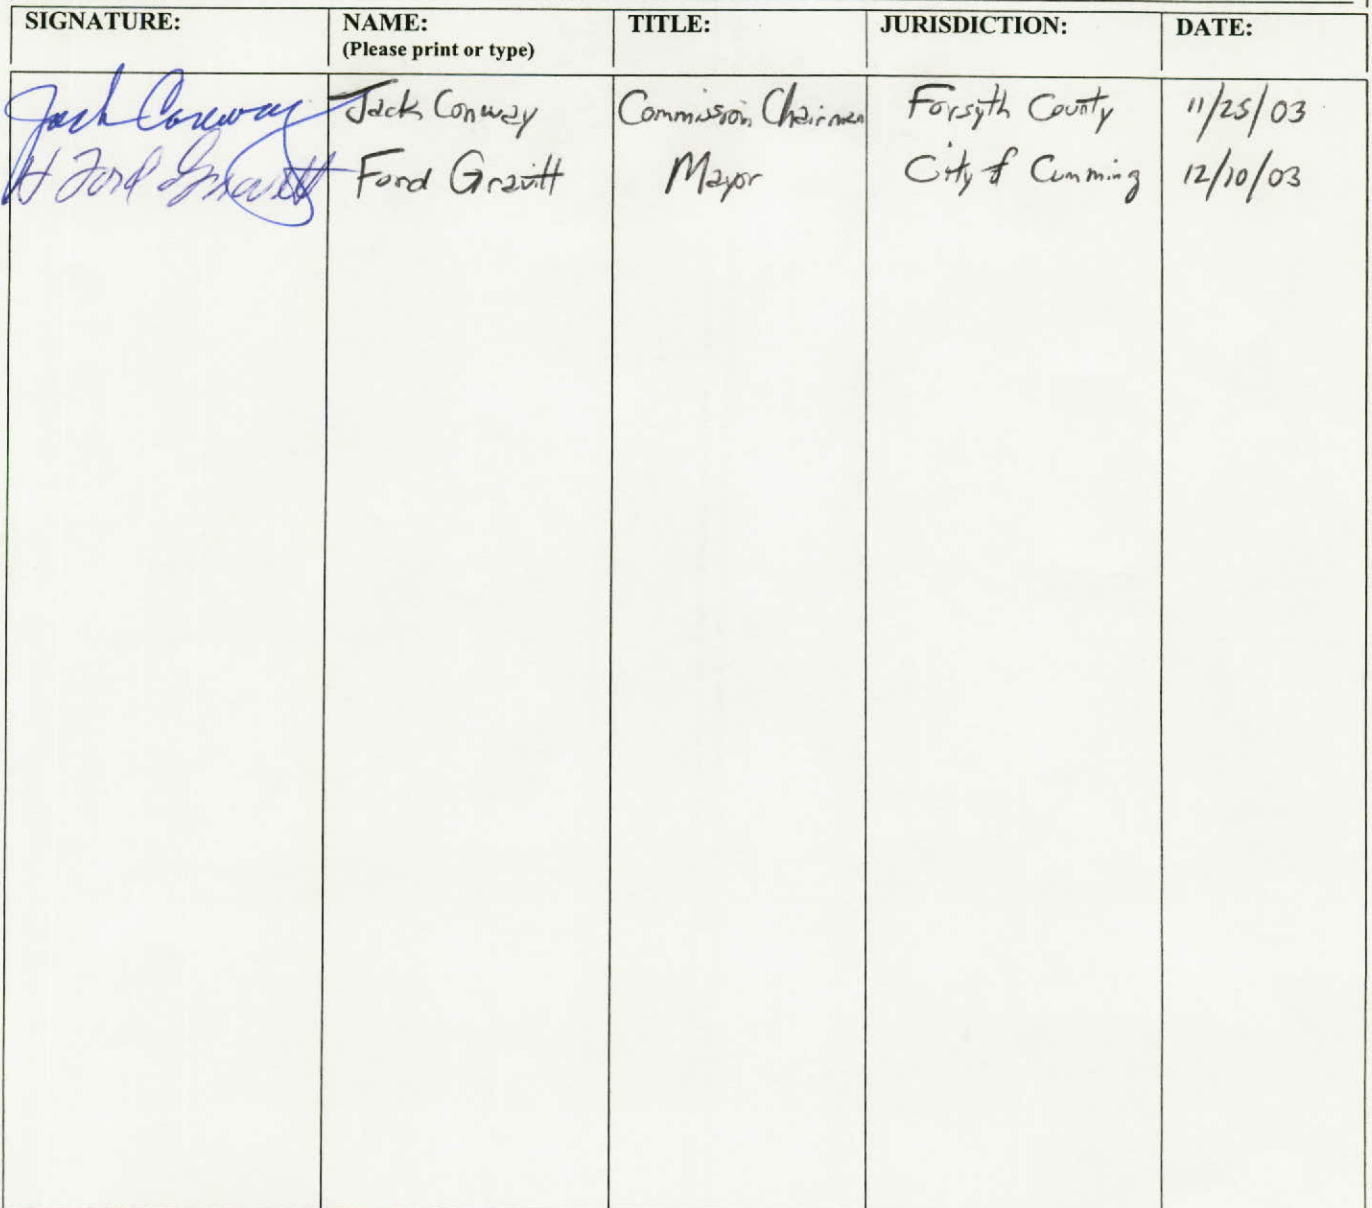 SIGNATURE: NAME: TITLE: JURISDICTION: DATE:
(Please print or type)
Jack Conway Jack Conway Commission Chairman Forsyth County 11/25/03
H Ford Gravitt Ford Gravitt Mayor City of Cumming 12/10/03